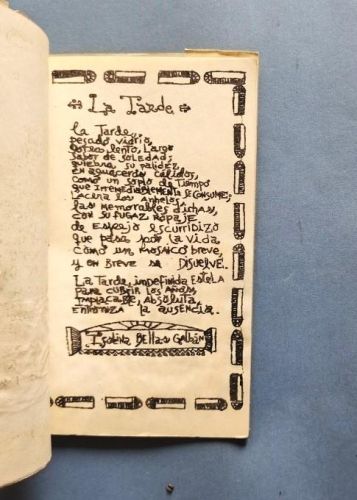 La Tarde
La Tarde,
pesado vidrio,
lento, Largo
sabor de SOLEDAD;
quiebra su palidez,
en aguaceros cálidos,
como un soplo de Tiempo
que IRREMEDIABLEMENTE SE CONSUME;
Lacera los Anhelos
las memorables dichas,
con su FUGAZ ROPAJE
de Espejo escurridizo
que pasa por la vida
como un MOSAICO breve,
y en BREVE se DISUELVE.
La Tarde, indefinida ESTELA
PARA CUBRIR los AÑOS,
IMPLACABLE, Absoluta,
ENTRONIZA la AUSENCIA.
Isolina BELLAS GALBÁN